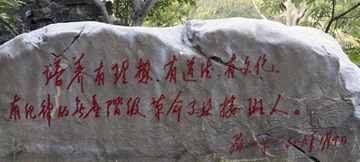 培养有理想、有道德、有文化、
有纪律的无产阶级革命事业接班人。